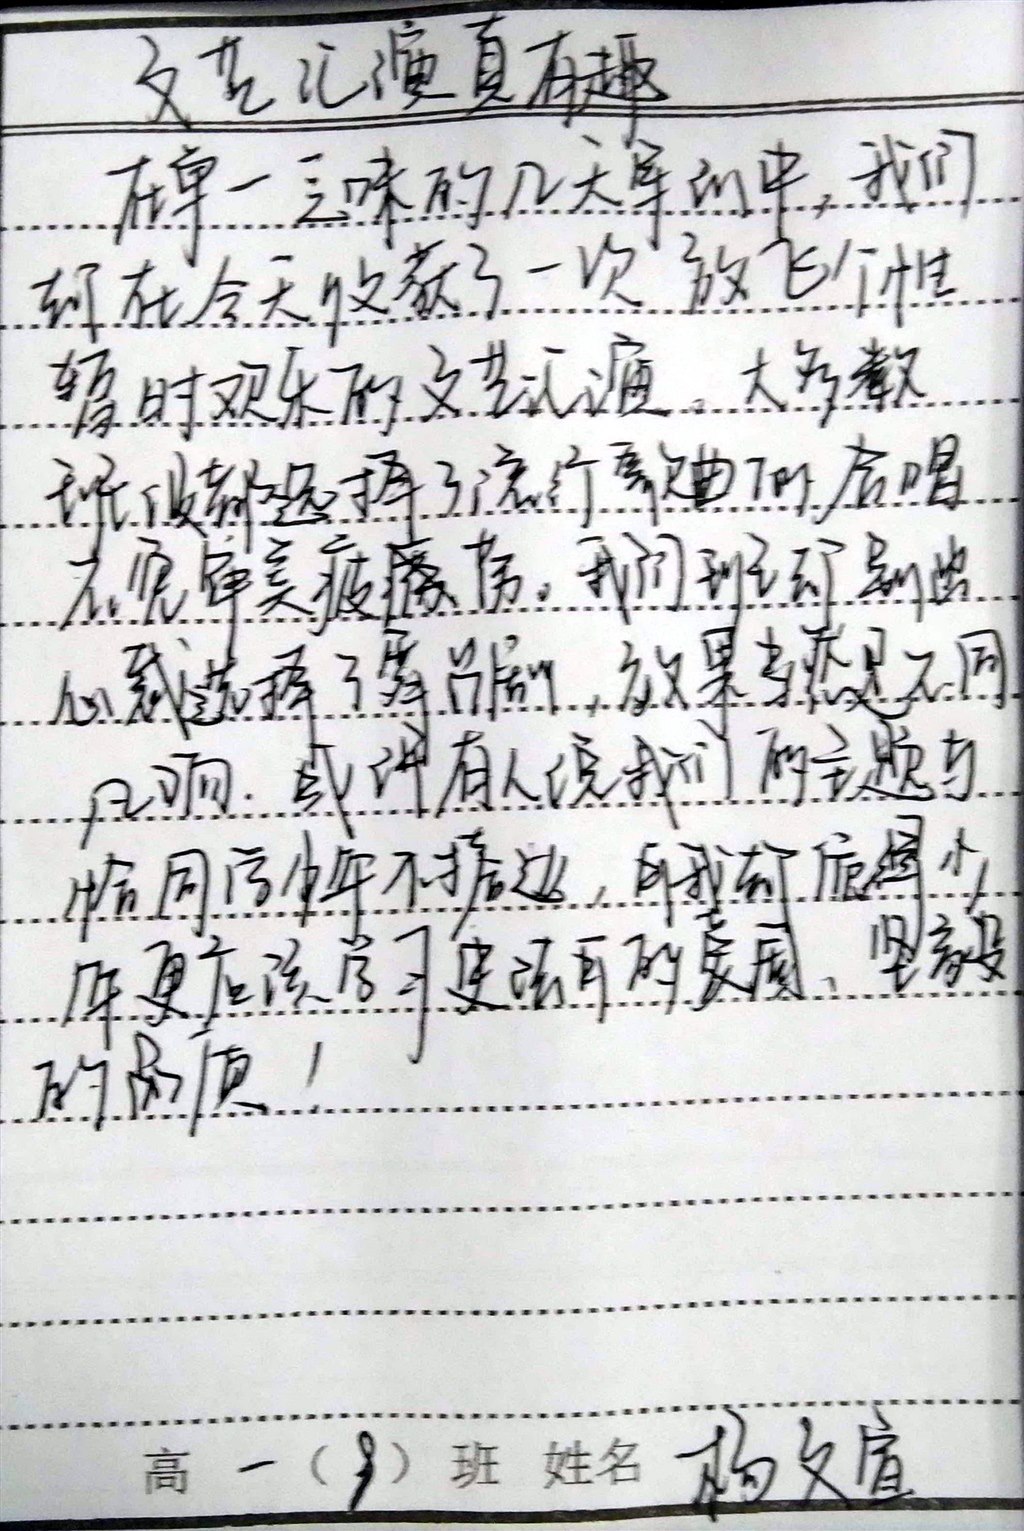 文艺汇演真有趣
在单一乏味的几天军训中,我们
却在今天收获了一次放飞个性
暂时欢乐的文艺汇演。大多数
班级都选择了流行歌曲的合唱
不免审美疲劳。我们班却别出
心裁选择了舞台剧,效果当然是不同
凡响。或许有人说我们的主题与
恰同学少年不搭边,可我却质疑少
年更应该学习史铁生的发奋、坚毅
的品质!
高一(9)班 姓名 杨文宣